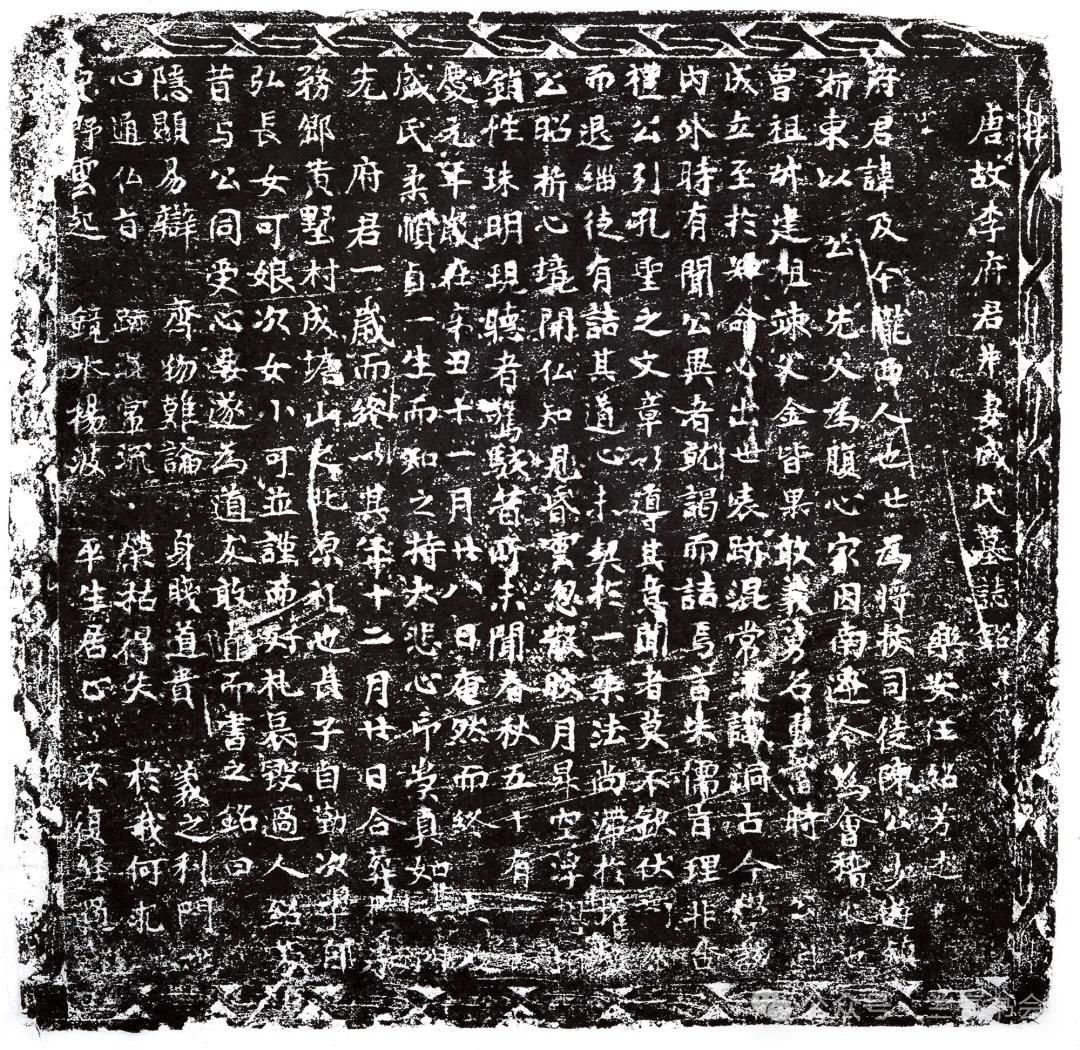 唐故李府君并妻戚氏墓誌銘
樂安任紹芳述
府君諱及本隴西人也世為將校司徒陳公少遊鎮
浙東以公先父為腹心家因南遷今為會稽人也
曾祖昇建祖竦父金皆果敢義勇名馬當時公
成立至於知命心出世表跡混常流識洞古今
內外時有聞公異者就謁而詰焉言朱儒百理非
禮公引孔聖之文章以導其意聞者莫不欽伏
而退緇徒有詰其道心未契於一乘法尚滯於
公昭析心境開仏知見昏雲忽散皎月昇空浮
銷性珠明現聽者驚駭昔所未聞春秋五十有
慶元年歲在辛丑十一月廿八日奄然而終
戚氏柔懫貞一生而知之持大悲心而崇真如
先府君一歲而終以其年十二月廿日合葬
務鄉黃墅村成塘山之北原礼也長子自勤次
弘長女可娘次女小可並謹而好札哀毀過人紹芳
昔与公同受心要遂為道友敢直而書之銘曰
隱顯易辯 齊物難論 身賤道貴 義之利門
心通仏旨 跡混常流 榮枯得失 於我何求
野雲起 鏡水揚波 平生居止 不復經過